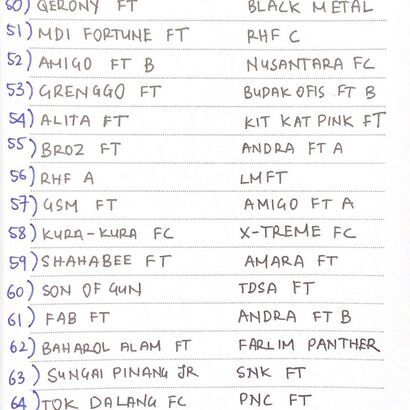 50) QERONY FT BLACK METAL
51) MDI FORTUNE FT RHF C
52) AMIGO FT B NUSANTARA FC
53) GRENGGO FT BUDAK OFIS FT B
54) ALITA FT KIT KAT PINK FT
55) BROZ FT ANDRA FT A
56) RHF A LMFT
57) GSM FT AMIGO FT A
58) KURA-KURA FC X-TREME FC
59) SHAHABEE FT AMARA FT
60) SON OF GUN TDSA FT
61) FAB FT ANDRA FT B
62) BAHAROL ALAM FT FARLIM PANTHER
63) SUNGAI PINANG JR SNK FT
64) TOK DALANG FC PNC FT